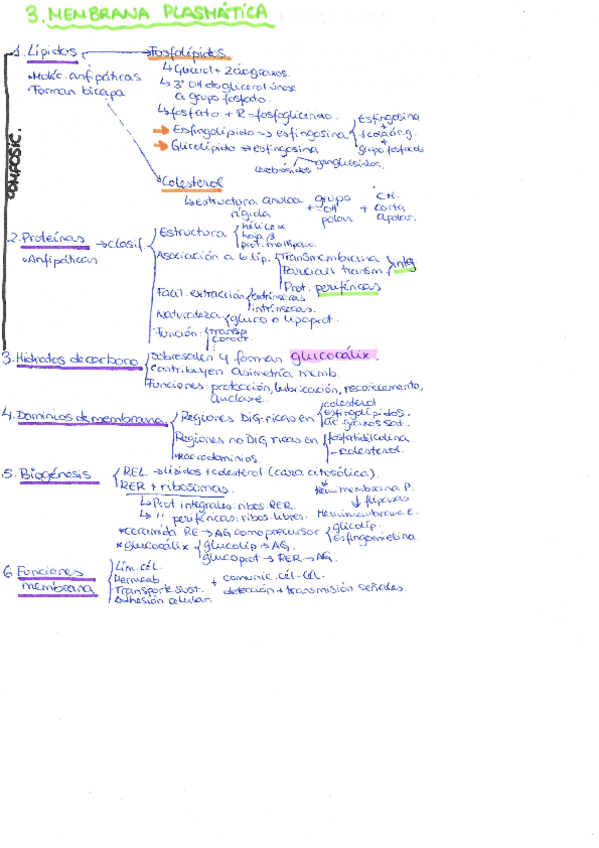 3. MEMBRANA PLASMÁTICA
COMPOSIC.
1. Lípidos
• Moléc. anfipáticas
• Forman bicapa
Fosfolípidos
↳ Glicerol + 2 ác grasos.
↳ 3º OH do glicerol únese
a grupo fosfato.
↳ fosfato + R = fosfoglicérido.
→ Esfingolípido → esfingosina
Esfingosina
+
1 cda ác.g.
+
grupo fosfato
→ Glicolípido → esfingosina
cerebrósidos
gangliósidos
Colesterol
↳ estructura anular rígida
+ grupo -OH polar
+ C.H. corta apolar.
2. Proteínas → clasif.
• Anfipáticas
Estructura
hélice α
hoja β
prot. multipaso.
Asociación a b.lip.
Transmembrana
Parcialt transm.
integ
Prot. periféricas
Facil. extracción
extrínsecas
intrínsecas.
Naturaleza gluco o lipoprot.
Función:
transp
conect.
3. Hidratos de carbono
Sobresalen y forman glucocálix.
Contribuyen asimetría memb.
Funciones: protección, lubricación, recoñecemento,
anclaxe.
4. Dominios de membrana
Regiones DIG: ricas en
colesterol
esfingolípidos.
ác. grasos sat.
Regiones no DIG ricas en
fosfatidilcolina
- colesterol.
• Macrodominios.
5. Biogénesis
REL → lípidos + colesterol (cara citosólica).
RER + ribosomas.
Hemimembrana P.
↓ flipasas
Hemimembrana E.
↳ Prot integrales: ribos. RER.
↳ " periféricas: ribos. libres.
* ceramida RE → AG como precursor
glicolíp.
esfingomielina.
* glucocálix
glucolip → AG.
glucoprot → RER → AG.
6 Funciones
membrana
Lim. cél.
Permeab.
Transporte sust.
Adhesión celular.
+ comunic. cél-cél.
detección + transmisión señales.